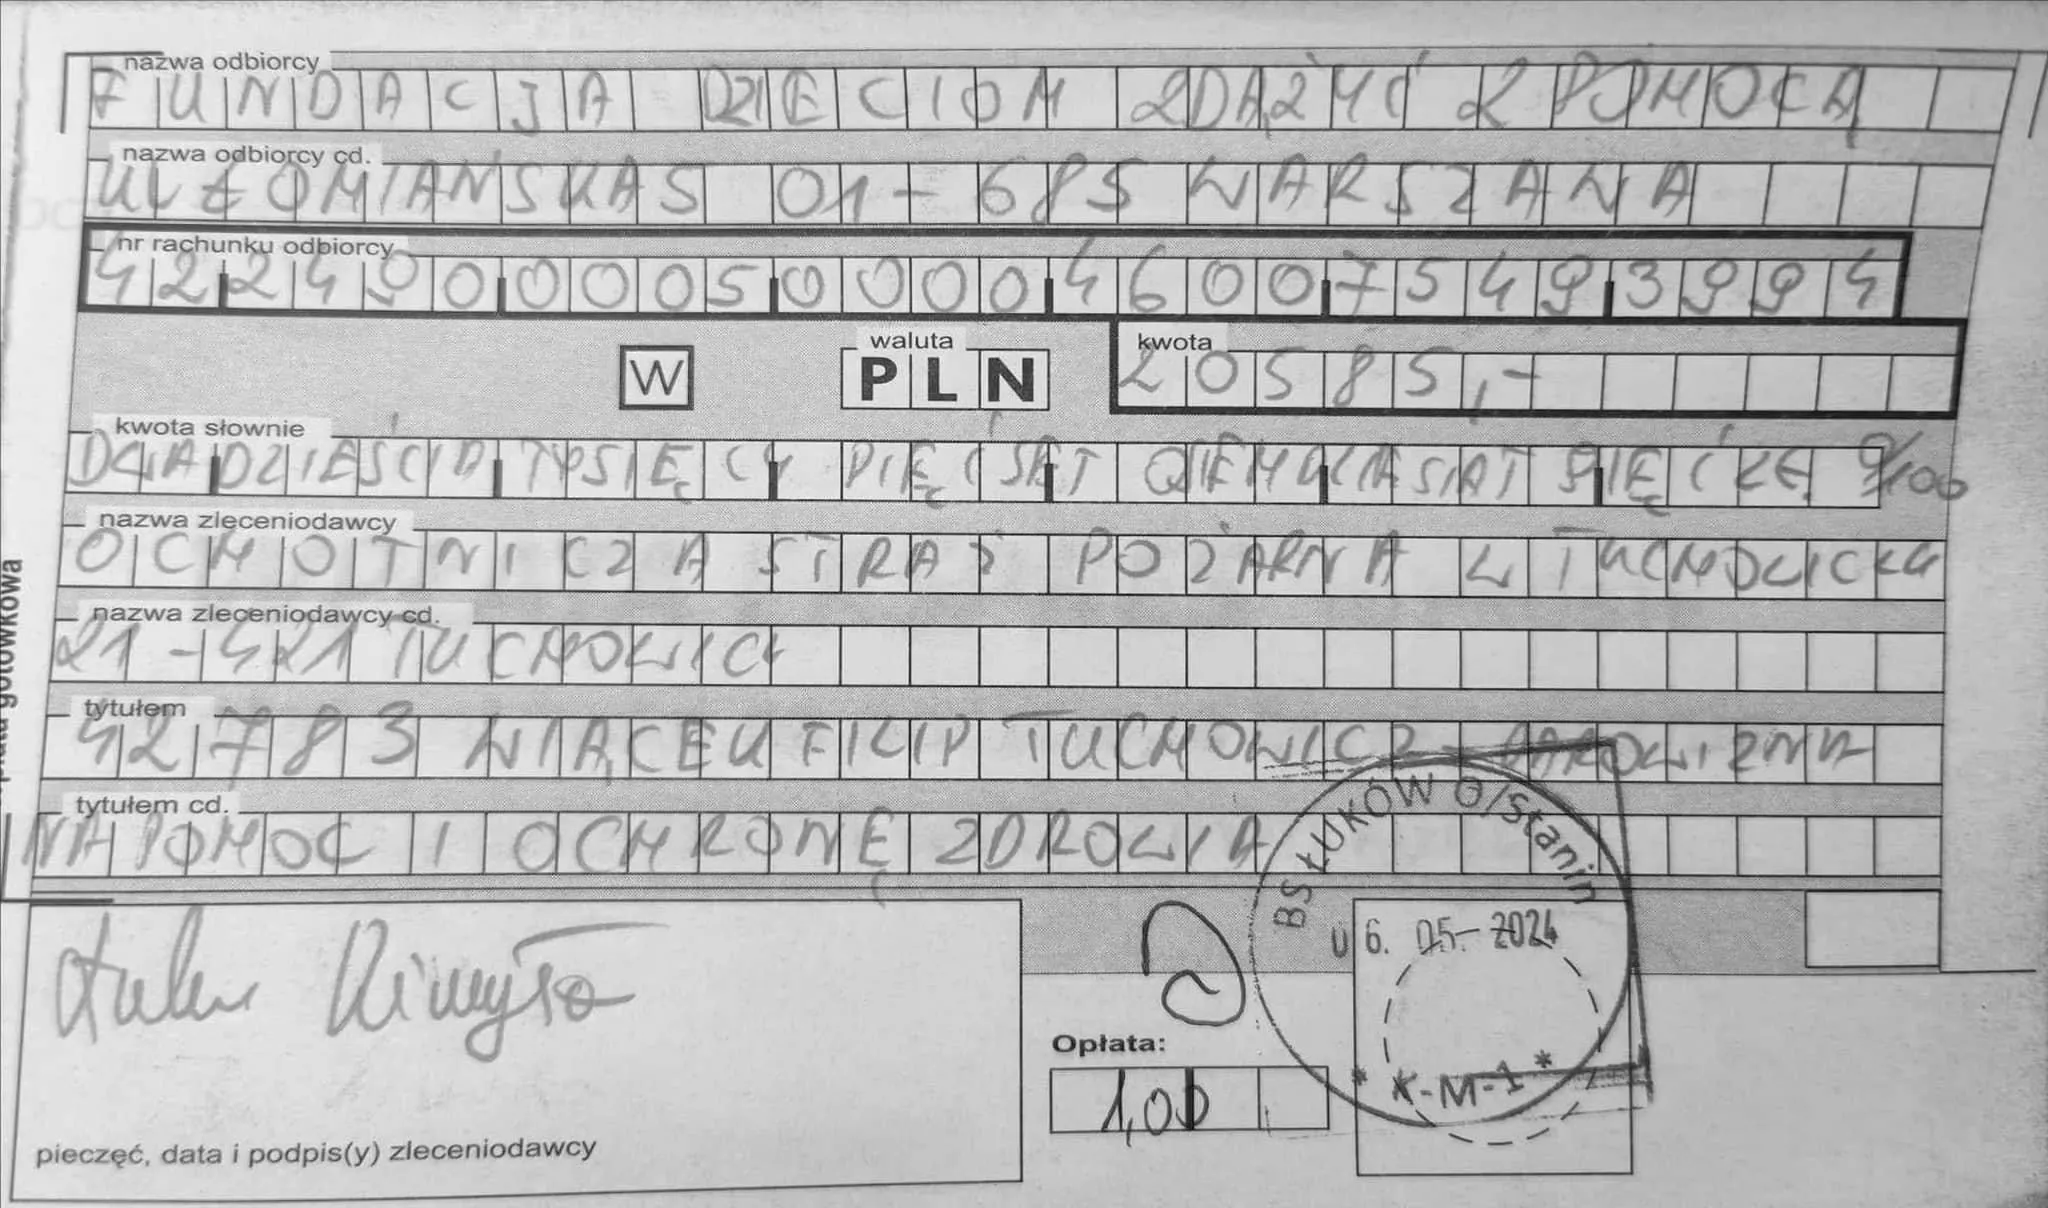 nazwa odbiorcy
FUNDACJA DZIECIOM ZDĄŻYĆ Z POMOCĄ
nazwa odbiorcy cd.
UL ŁOMIAŃSKA 5 01-685 WARSZAWA
nr rachunku odbiorcy
42 2490 0005 0000 4600 7549 3994
W
waluta
PLN
kwota
20585,-
kwota słownie
DWADZIEŚCIA TYSIĘCY PIĘĆSET OSIEMDZIESIĄT PIĘĆ ZŁ 0/100
nazwa zleceniodawcy
OCHOTNICZA STRAŻ POŻARNA W TUCHOWICZU
nazwa zleceniodawcy cd.
21-421 TUCHOWICZ
tytułem
42783 WIĄCEK FILIP TUCHOWICZ - DAROWIZNA
tytułem cd.
NA POMOC I OCHRONĘ ZDROWIA
BS ŁUKÓW O/Stanin
06. 05. 2024
* K-M-1 *
Opłata:
1,00
pieczęć, data i podpis(y) zleceniodawcy